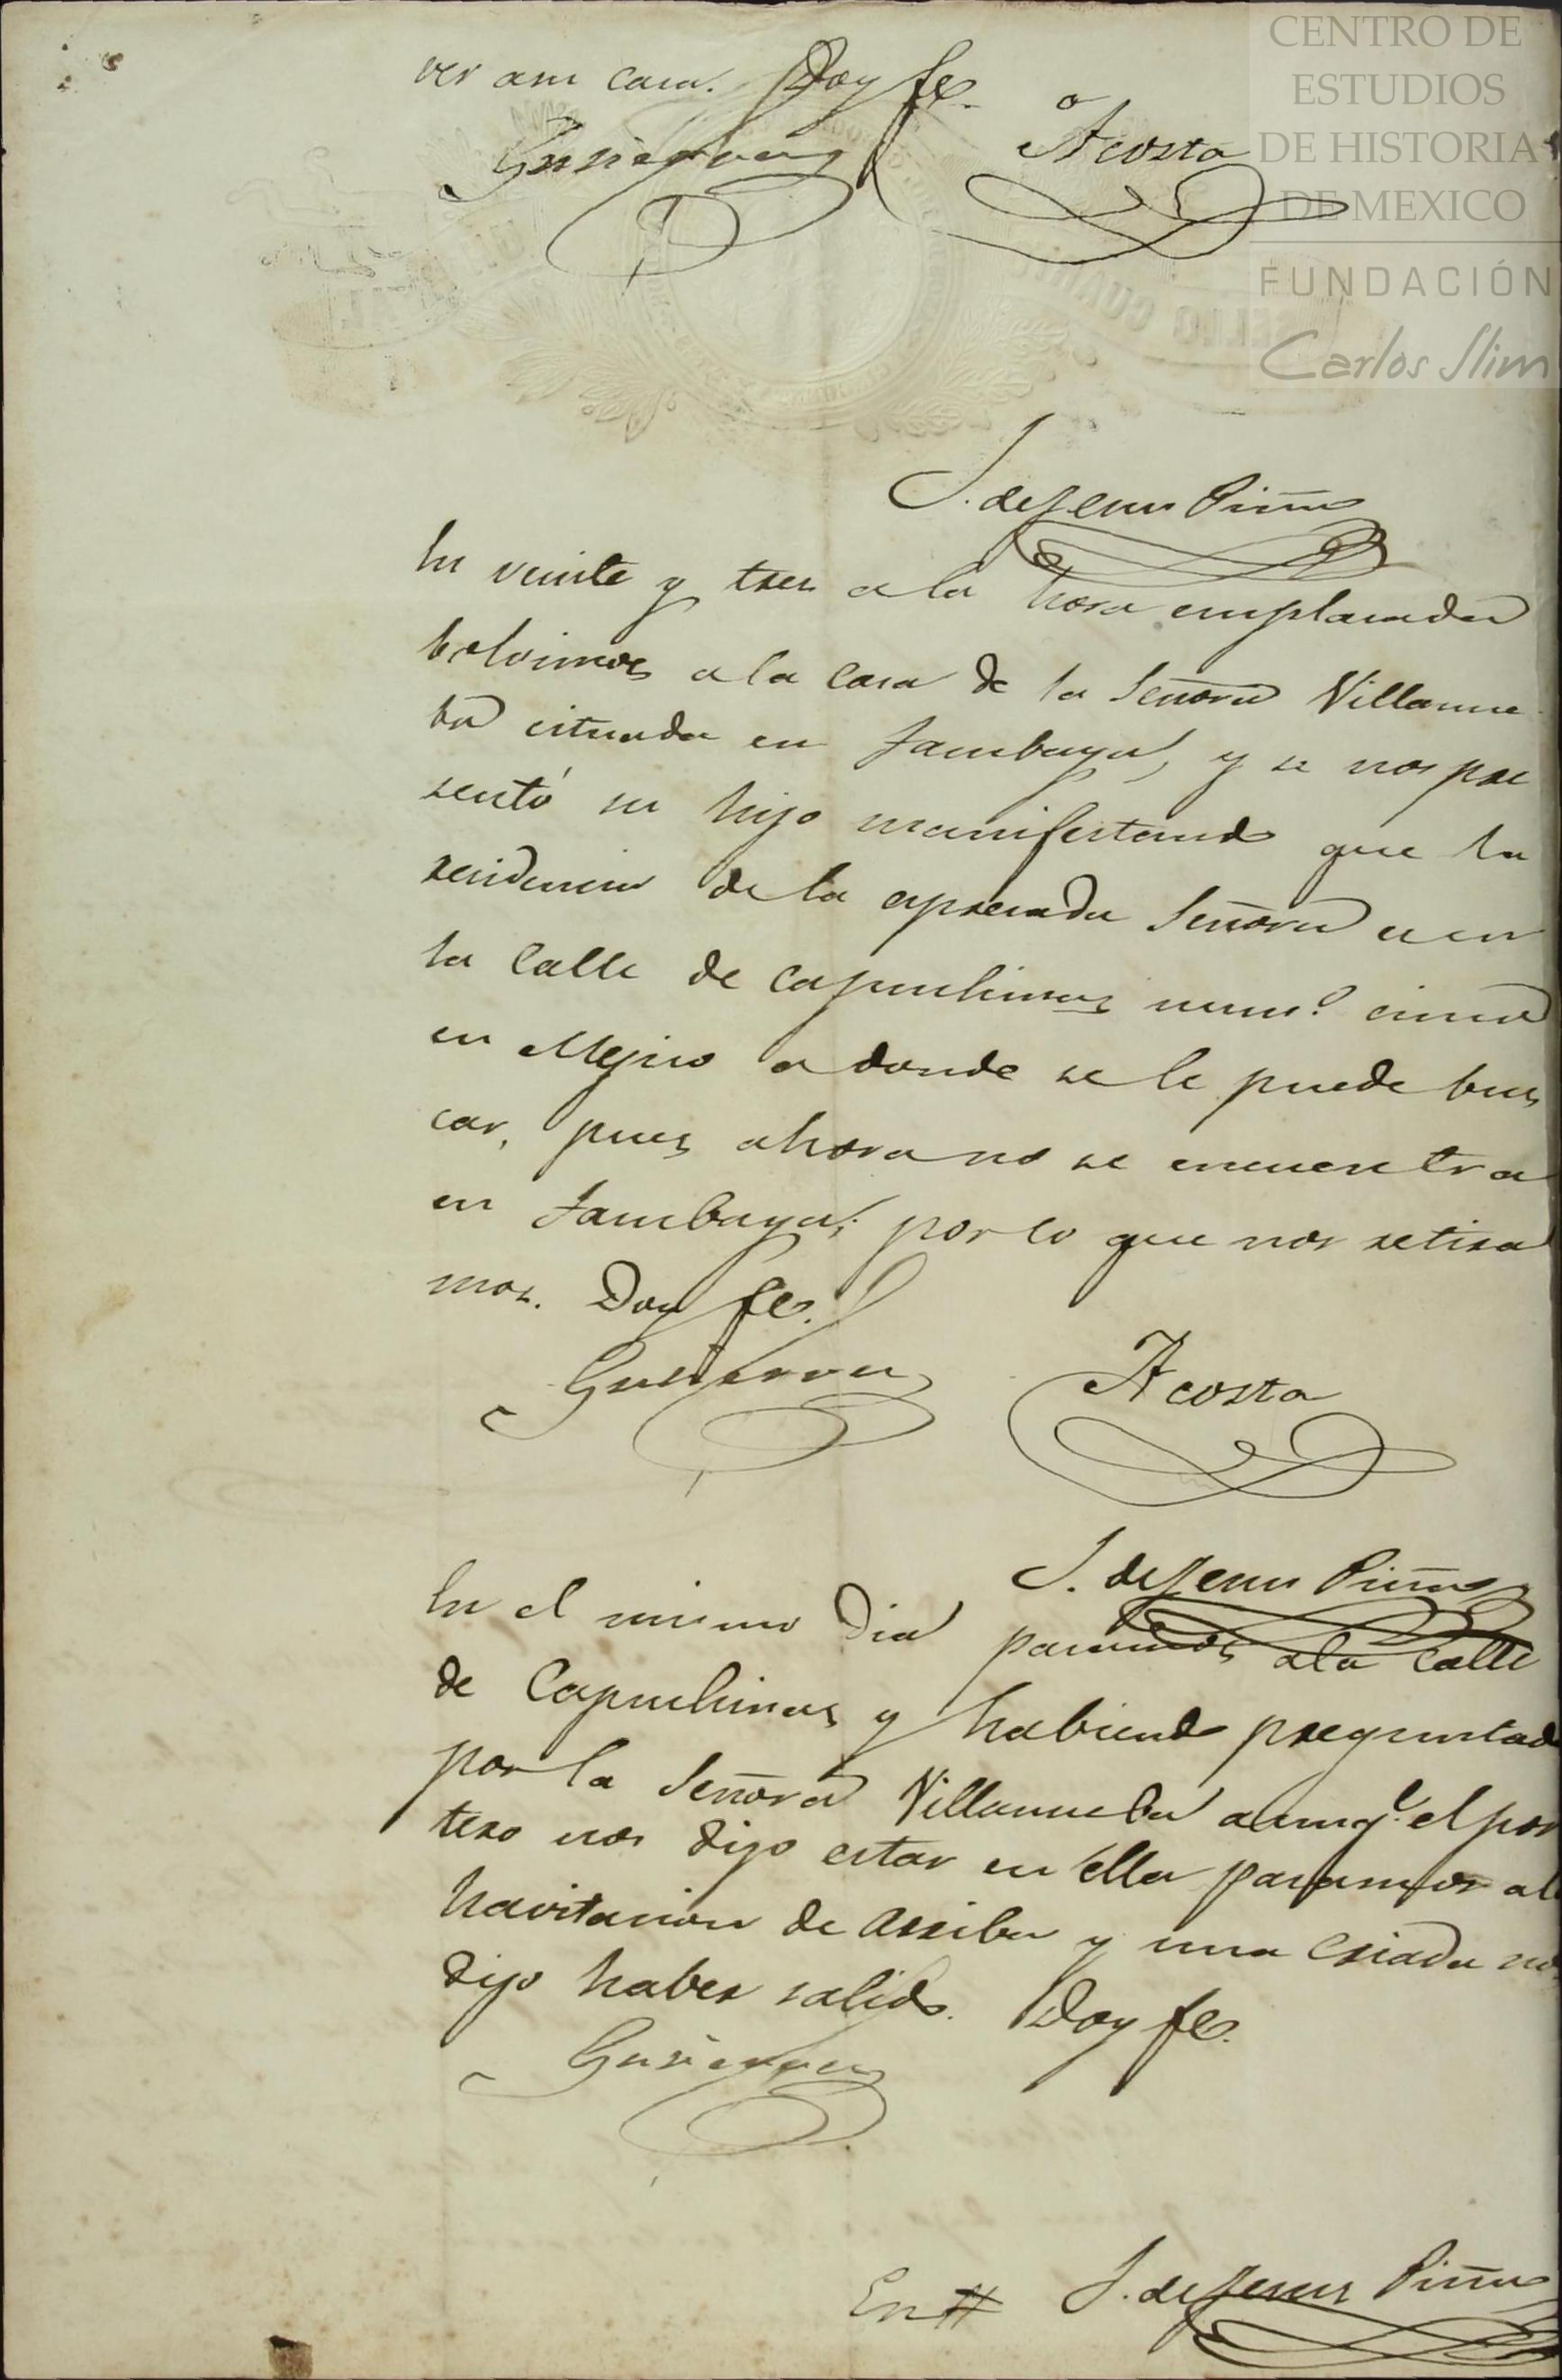 ver a su casa. Doy fe.
Gutierrez Acosta
CENTRO DE
ESTUDIOS
DE HISTORIA
DE MEXICO
FUNDACIÓN
Carlos Slim
J. de Jesus Piña
En veinte y tres a la hora emplasada
bolvimos a la casa de la Señora Villanue
ba cituada en Tacubaya, y se nos pre
sentó su hijo manifestando que la
recidencia de la epresada Señora es en
la Calle de Capuchinas num.o cinco
en Mejico a donde se le puede bus
car, pues ahora no se encuentra
en Tacubaya; por lo que nos retira
mos. Doy fe.
Gutierrez Acosta
J. de Jesus Piña
En el mismo Dia pasamos a la Calle
de Capuchinas y habiendo preguntado
por la Señora Villanueba aunq.e el por
tero nos dijo estar en ella pasamos a la
havitacion de arriba y una criada nos
dijo haber salido. Doy fe.
Gutierrez
En J. de Jesus Piña